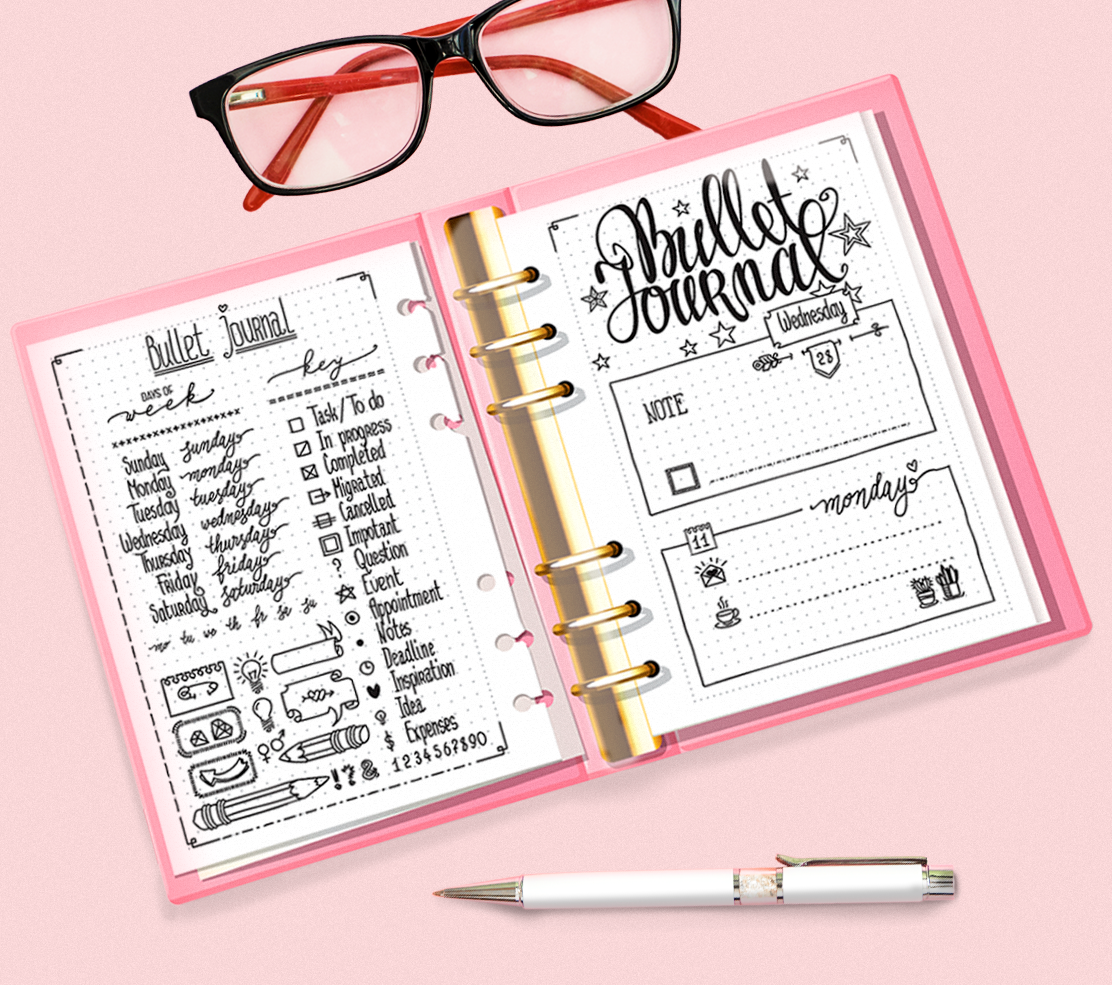 Bullet Journal
DAYS OF
week
Sunday sunday
Monday monday
Tuesday tuesday
Wednesday wednesday
Thursday thursday
Friday friday
Saturday saturday
mo tu we th fr sa su
key
Task/To do
In progress
Completed
Migrated
Cancelled
Impotant
? Question
Event
Appointment
Notes
Deadline
Inspiration
Idea
$ Expenses
1234567890
!?&
Bullet
Journal
Wednesday
28
NOTE
monday
11